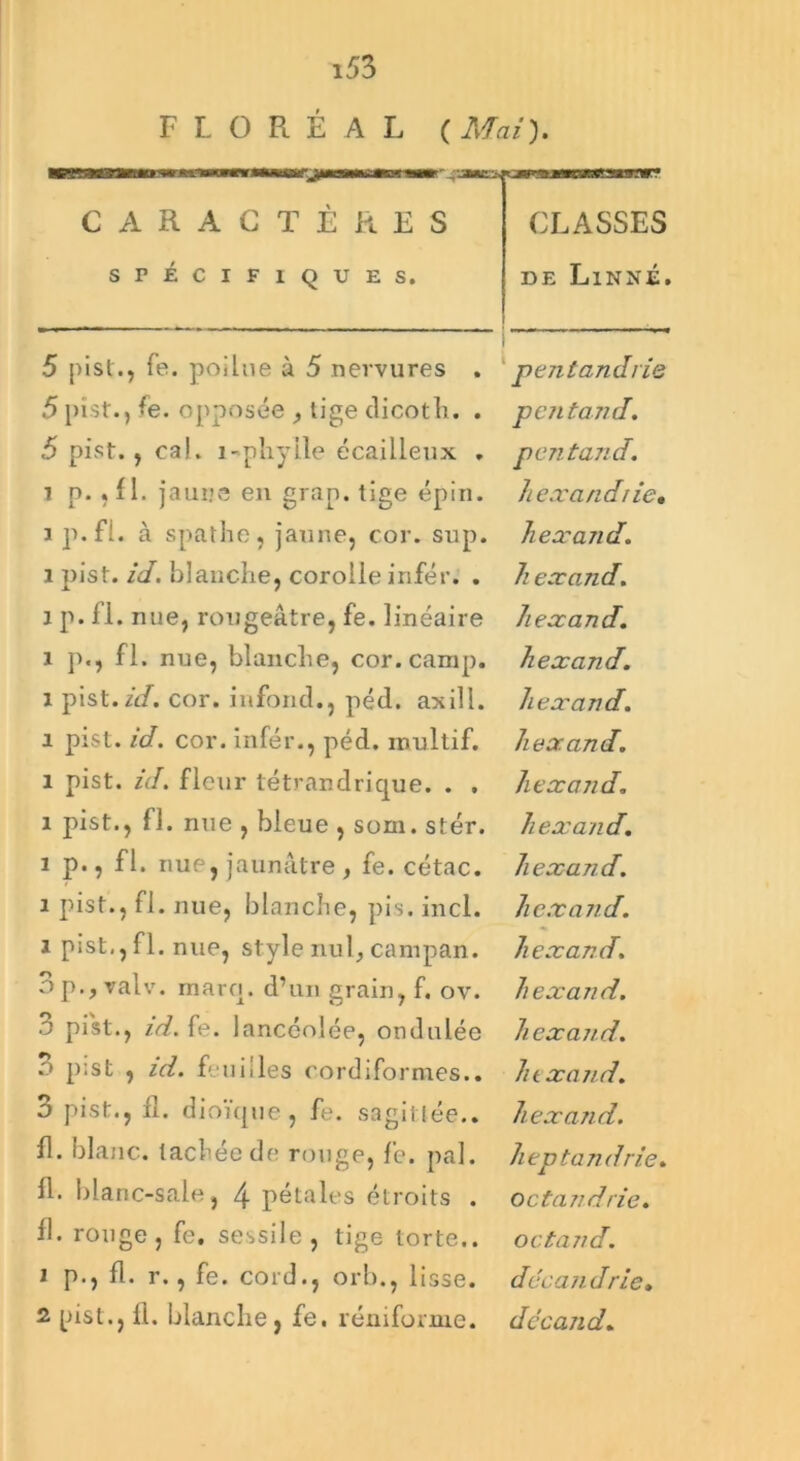 153
FLORÉAL (Mai).
CARACTÈRES SPÉCIFIQUES. CLASSES DE LINNÉ.
5 pist., fe. poilue à 5 nervures . pentandrie
5 pist., fe. opposée, tige dicoth. . pentand.
5 pist., cal. 1-phylle écailleux . pentand.
1 p., fl. jaune en grap. tige épin. hexandrie.
1 p. fl. à spathe, jaune, cor. sup. hexand.
1 pist. id. blanche, corolle infér. . hexand.
1 p. fl. nue, rougeâtre, fe. linéaire hexand.
1 p., fl. nue, blanche, cor. camp. hexand.
1 pist. id. cor. infond., péd. axill. hexand.
1 pist. id. cor. infér., péd. multif. hexand.
1 pist. id. fleur tétrandrique. . . hexand.
1 pist., fl. nue, bleue, som. stér. hexand.
1 p., fl. nue, jaunâtre, fe. cétac. hexand.
1 pist., fl. nue, blanche, pis. incl. hexand.
1 pist., fl. nue, style nul, campan. hexand.
3 p., valv. marq. d'un grain, f. ov. hexand.
3 pist., id. fe. lancéolée, ondulée hexand.
3 pist, id. feuilles cordiformes.. hexand.
3 pist., fl. dioïque, fe. sagittée.. hexand.
fl. blanc. tachée de rouge, fe. pal. heptandrie.
fl. blanc-sale, 4 pétales étroits . octandrie.
fl. rouge, fe. sessile, tige torte.. octand.
1 p., fl. r., fe. cord., orb., lisse. décandrie.
2 pist., fl. blanche, fe. réniforme. décand.